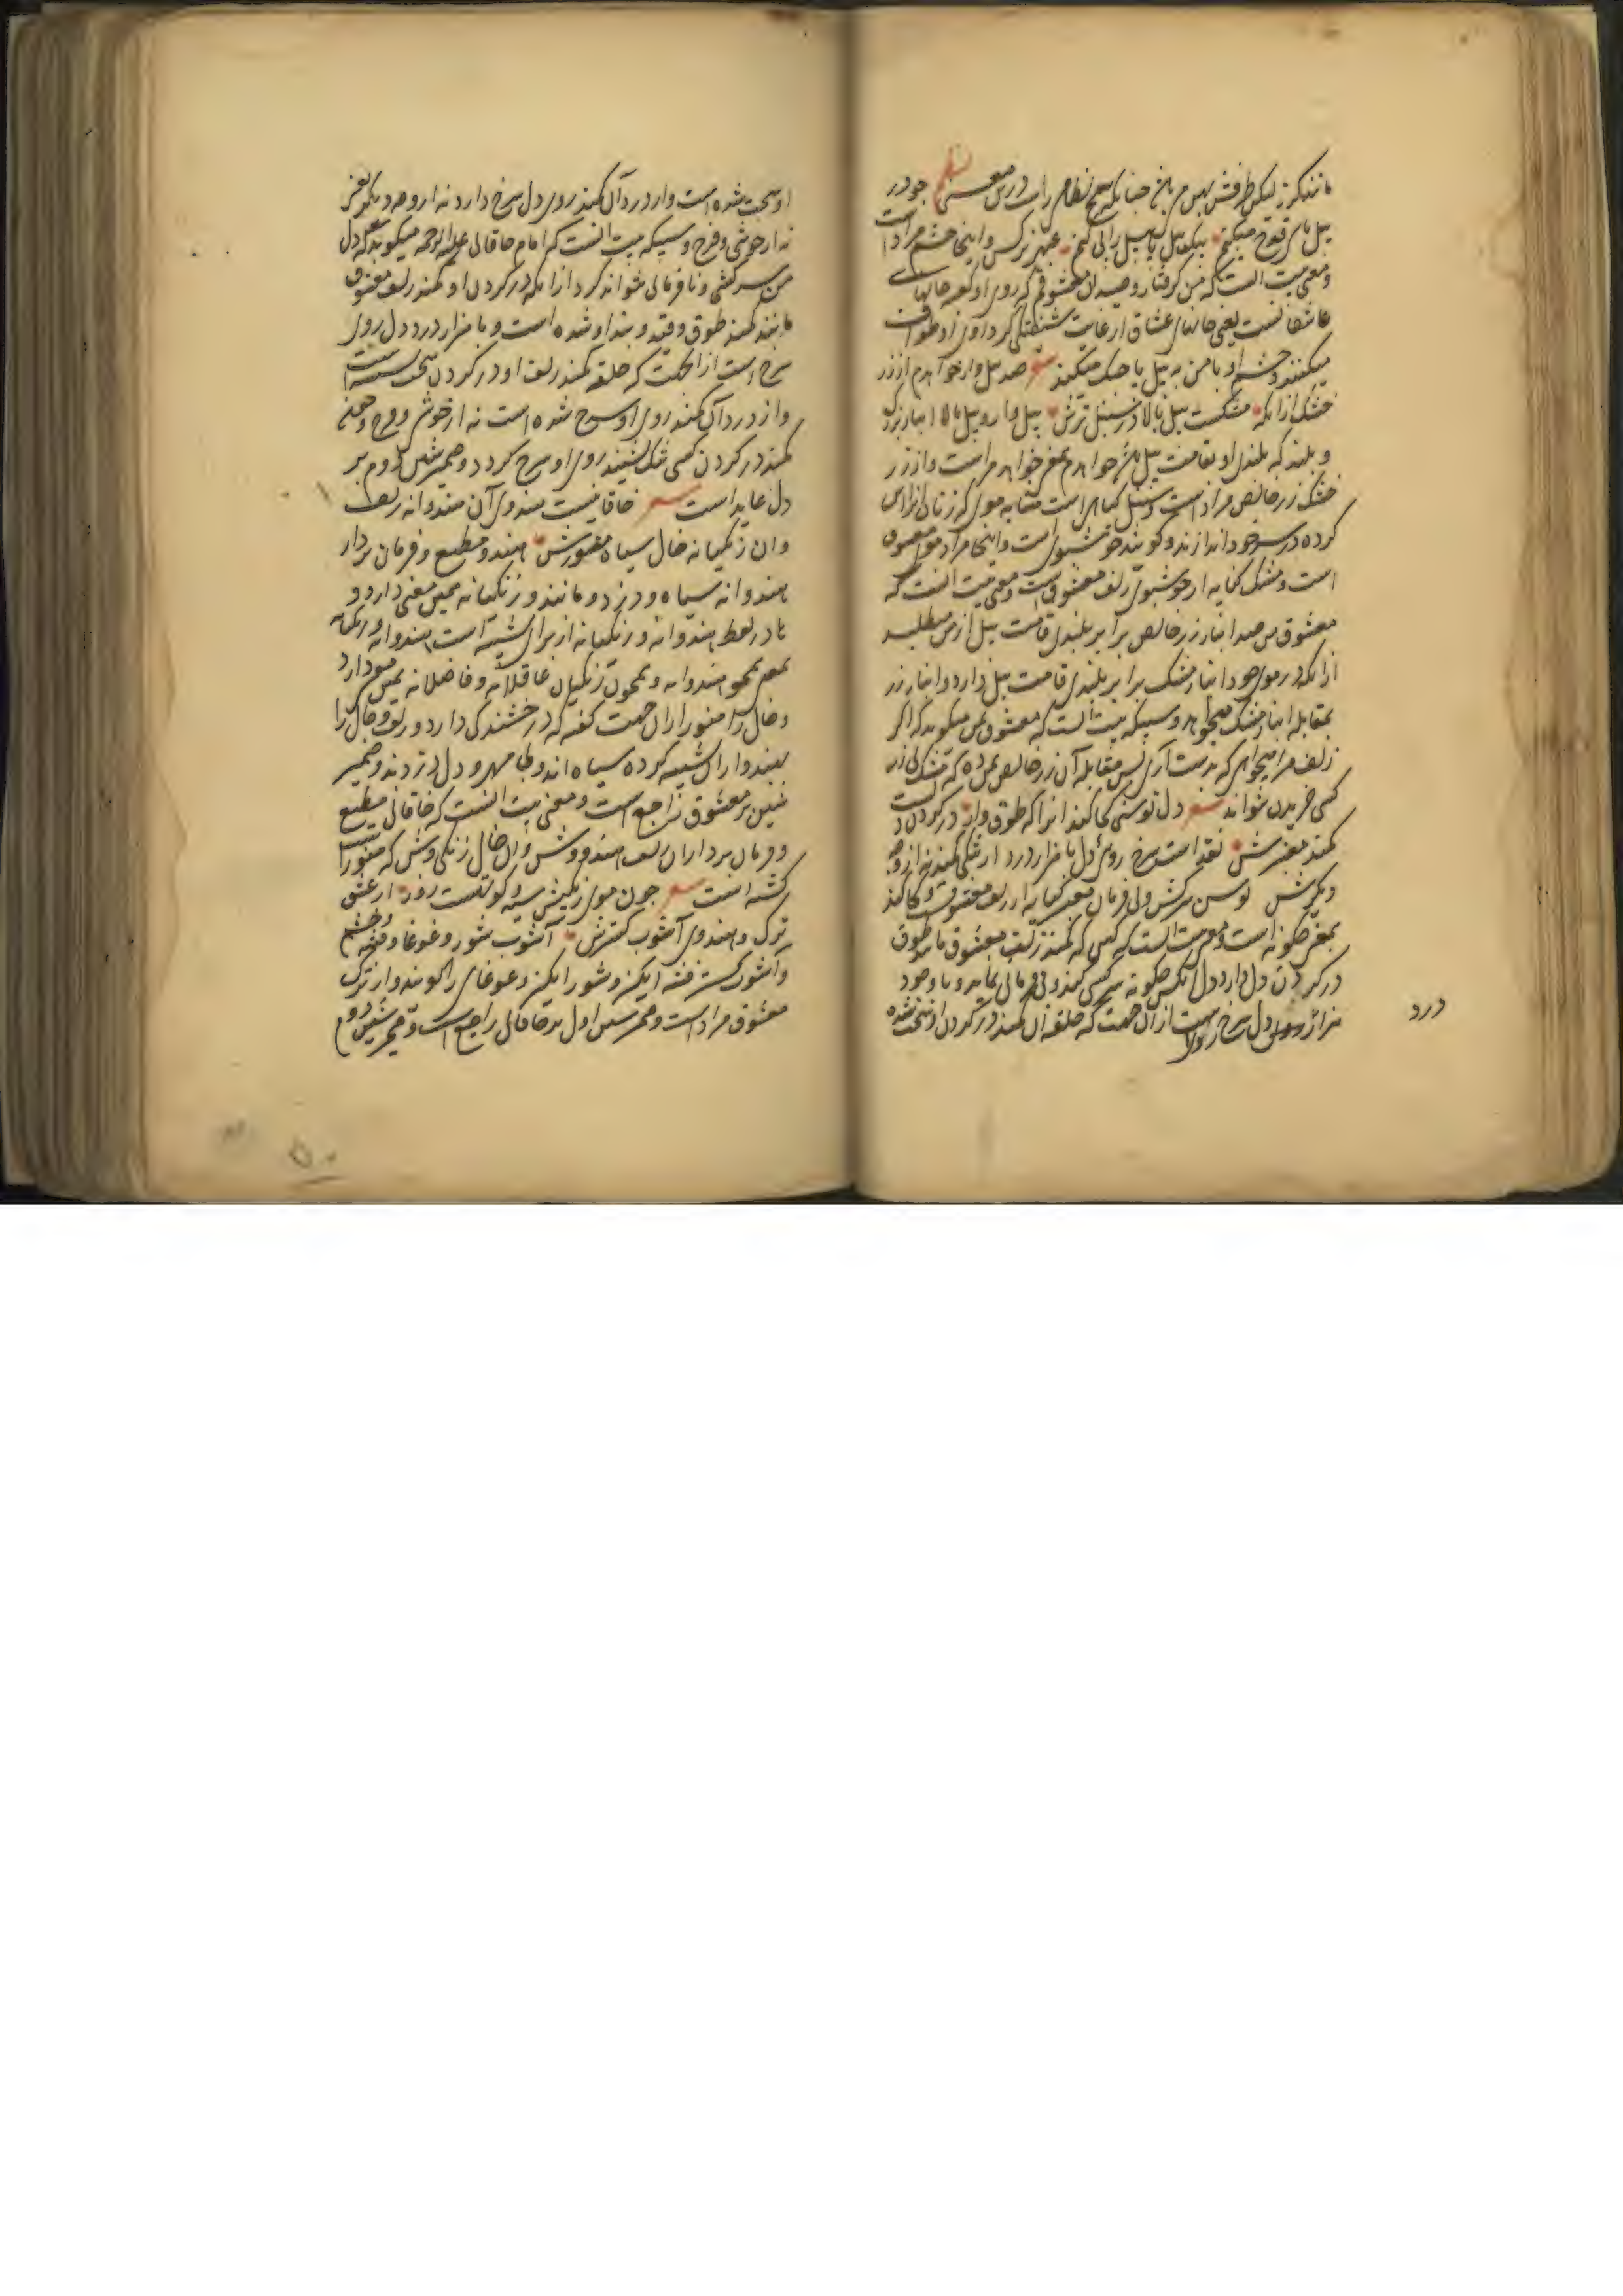 مانند کرز لیکن طرفش پهن میباشد چنانکه شیخ نظامی راست درین معنی جو در
پیل پای قدح میکنم بیک پیل پا پیل را پی کنم عبهر نرکس و اینجا چشم مراد است
و معنی بیت آنست که من کرفتار و صید آن معشوقم که روی او کعبه جانهای
عاشقانست یعنی جانهای عشاق از غایت کرد روی او طواف
میکنند و چشم او با من به پیل پا جنک میکند شعر صد پیل وار خواهدم از زر
خشک ازانکه مشکست پیل بالا در سنبل ترش پیل وار و پیل بالا انبار بزرک
و بلند که بلندی او بقامت پیل باشد خواهدم بمعنی خواهد مراست و از زر
خشک زر خالص مراد است و سنبل کیاهی است مشابه موی که زنان
کرده در سر خود اندازند و کویند خوشبوی است و اینجا مراد موی معشوق
است و مشک کنایه از خوشبوی زلف معشوق است و معنی بیت آنست که
معشوق من صد انبار زر خالص برابر بلندی قامت پیل از من میطلبد
ازانکه در موی خود انبار مشک برابر بلندی قامت پیل دارد و انبار زر
بمقابله انبار مشک میخواهد و سبیکه بیت آنست که معشوق من میکوید که اکر
زلف مرا میخواهی که بدست آری پس مقابله آن زر خالص بمن ده که مشک بی زر
کسی خریدن نتواند شعر دل توسنی کجا کند آنرا که طوق وار در کردن دلست
کمند معنبرش نقد است سرخ روی دل با هزار درد از تنکی کمند نه از وجه
دیکرش توسن سرکش و نافرمان معنبر کنایه از زلف معشوق و کجا کند
بمعنی چکونه است و معنی بیت آنست که کسی که کمند زلف معشوق مانند طوق
در کردن دل دارد دل آنکس چکونه سرکشی کند و نافرمانی نماید و با وجود
هزار درد روی دل سرخ است ازان جهت که حلقه آن کمند در کردن او سخت شده
درد
او سخت شده است و از درد آن کمند روی دل سرخ دارد نه از وجه دیکر یعنی
نه از خوشی و فرح و سبیکه بیت آنست که امام خاقانی علیه الرحمه میکوید که دل
من سرکشی و نافرمانی نتواند کرد ازانکه در کردن او کمند زلف معشوق
مانند کمند طوق و قید و بند او شده است و با هزار درد دل روی
سرخ است از آنجهت که حلقه کمند زلف او در کردن سخت شده است
و از درد آن کمند روی او سرخ شده است نه از خوشی و فرح و همچنین
کمند در کردن کسی تنک نشیند روی او سرخ کردد و ضمیر شین دوم بر
دل عاید است شعر خاقانیست هندوی آن هندوانه زلف
وان زنکیانه خال سیاه منورش هندو مطیع و فرمان بردار
هندوانه سیاه و دزد و مانند و زنکیانه همین معنی دارد و
ها در لفظ هندوانه و زنکیانه از برای تشبیه است هندوانه و زنکیانه
یعنی همچو هندوان و همچون زنکیان عاقلانه و فاضلانه همین معنی دارد
و خال را منور ازان جهت کفته که درخشندکی دارد و زلف و خال را
بهندو ازان تشبیه کرده سیاه اند و دل دزدند و ضمیر
شین بر معشوق راجع است و معنی بیت آنست که خاقانی مطیع
و فرمان بردار آن زلف هندو وش و آن خال زنکی وش که منور است
کشته است شعر چون موی زنکیش سیه و کوتهست روز از عشق
ترک و هندوی آشوب کسترش آشوب شور و غوغا و فتنه و خشم
و آشوب کستر فتنه انکیز و شور انکیز و غوغای را کویند و از ترک
معشوق مراد است و ضمیر شین اول بر خاقانی راجع است و ضمیر شین دوم